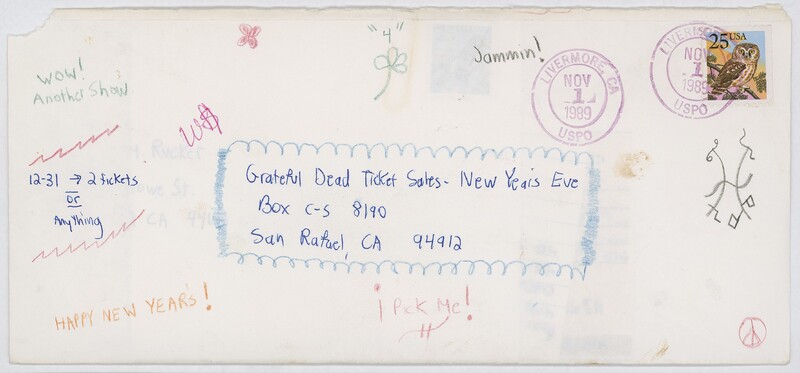 "4"
Jammin!
WOW!
Another Show
LIVERMORE, CA
NOV
1
1989
USPO
LIVERMORE
NOV
1
1989
USPO
25 USA
12-31 → 2 tickets
or
Anything
Grateful Dead Ticket Sales - New Year's Eve
Box C-S 8190
San Rafael, CA 94912
HAPPY NEW YEAR'S!
¡Pick Me!